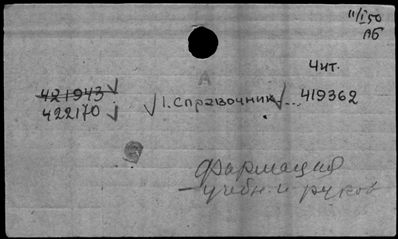 11/I 50
АБ
Чит.
421943 √
422170 √
√ 1. Справочник √ ... 419362
Фармация
— учебн. и руков